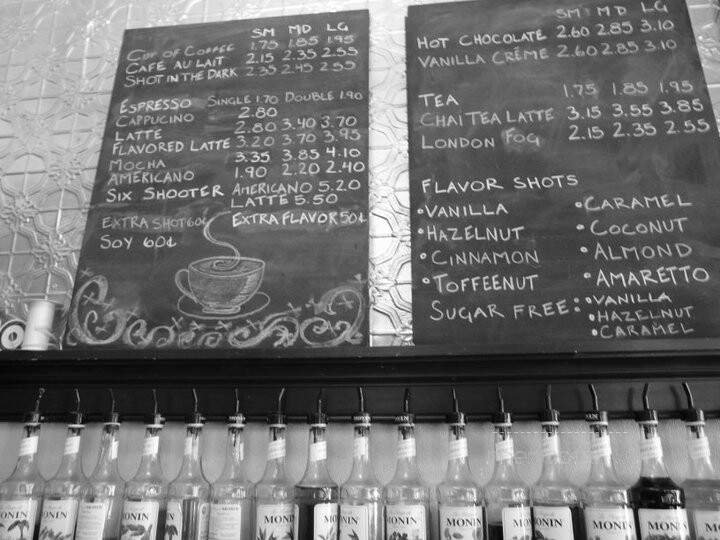 SM MD LG
CUP OF COFFEE 1.75 1.85 1.95
CAFE AU LAIT 2.15 2.35 2.55
SHOT IN THE DARK 2.35 2.45 2.55
ESPRESSO SINGLE 1.70 DOUBLE 1.90
CAPPUCINO 2.80
LATTE 2.80 3.40 3.70
FLAVORED LATTE 3.20 3.70 3.95
MOCHA 3.35 3.85 4.10
AMERICANO 1.90 2.20 2.40
SIX SHOOTER AMERICANO 5.20
LATTE 5.50
EXTRA SHOT 60¢ EXTRA FLAVOR 50¢
SOY 60¢
SM MD LG
HOT CHOCOLATE 2.60 2.85 3.10
VANILLA CRÈME 2.60 2.85 3.10
TEA 1.75 1.85 1.95
CHAI TEA LATTE 3.15 3.55 3.85
LONDON FOG 2.15 2.35 2.55
FLAVOR SHOTS
•VANILLA •CARAMEL
•HAZELNUT •COCONUT
•CINNAMON •ALMOND
•TOFFEENUT •AMARETTO
SUGAR FREE: •VANILLA
•HAZELNUT
•CARAMEL
MONIN MONIN MONIN MONIN MONIN MONIN MONIN MONIN MONIN